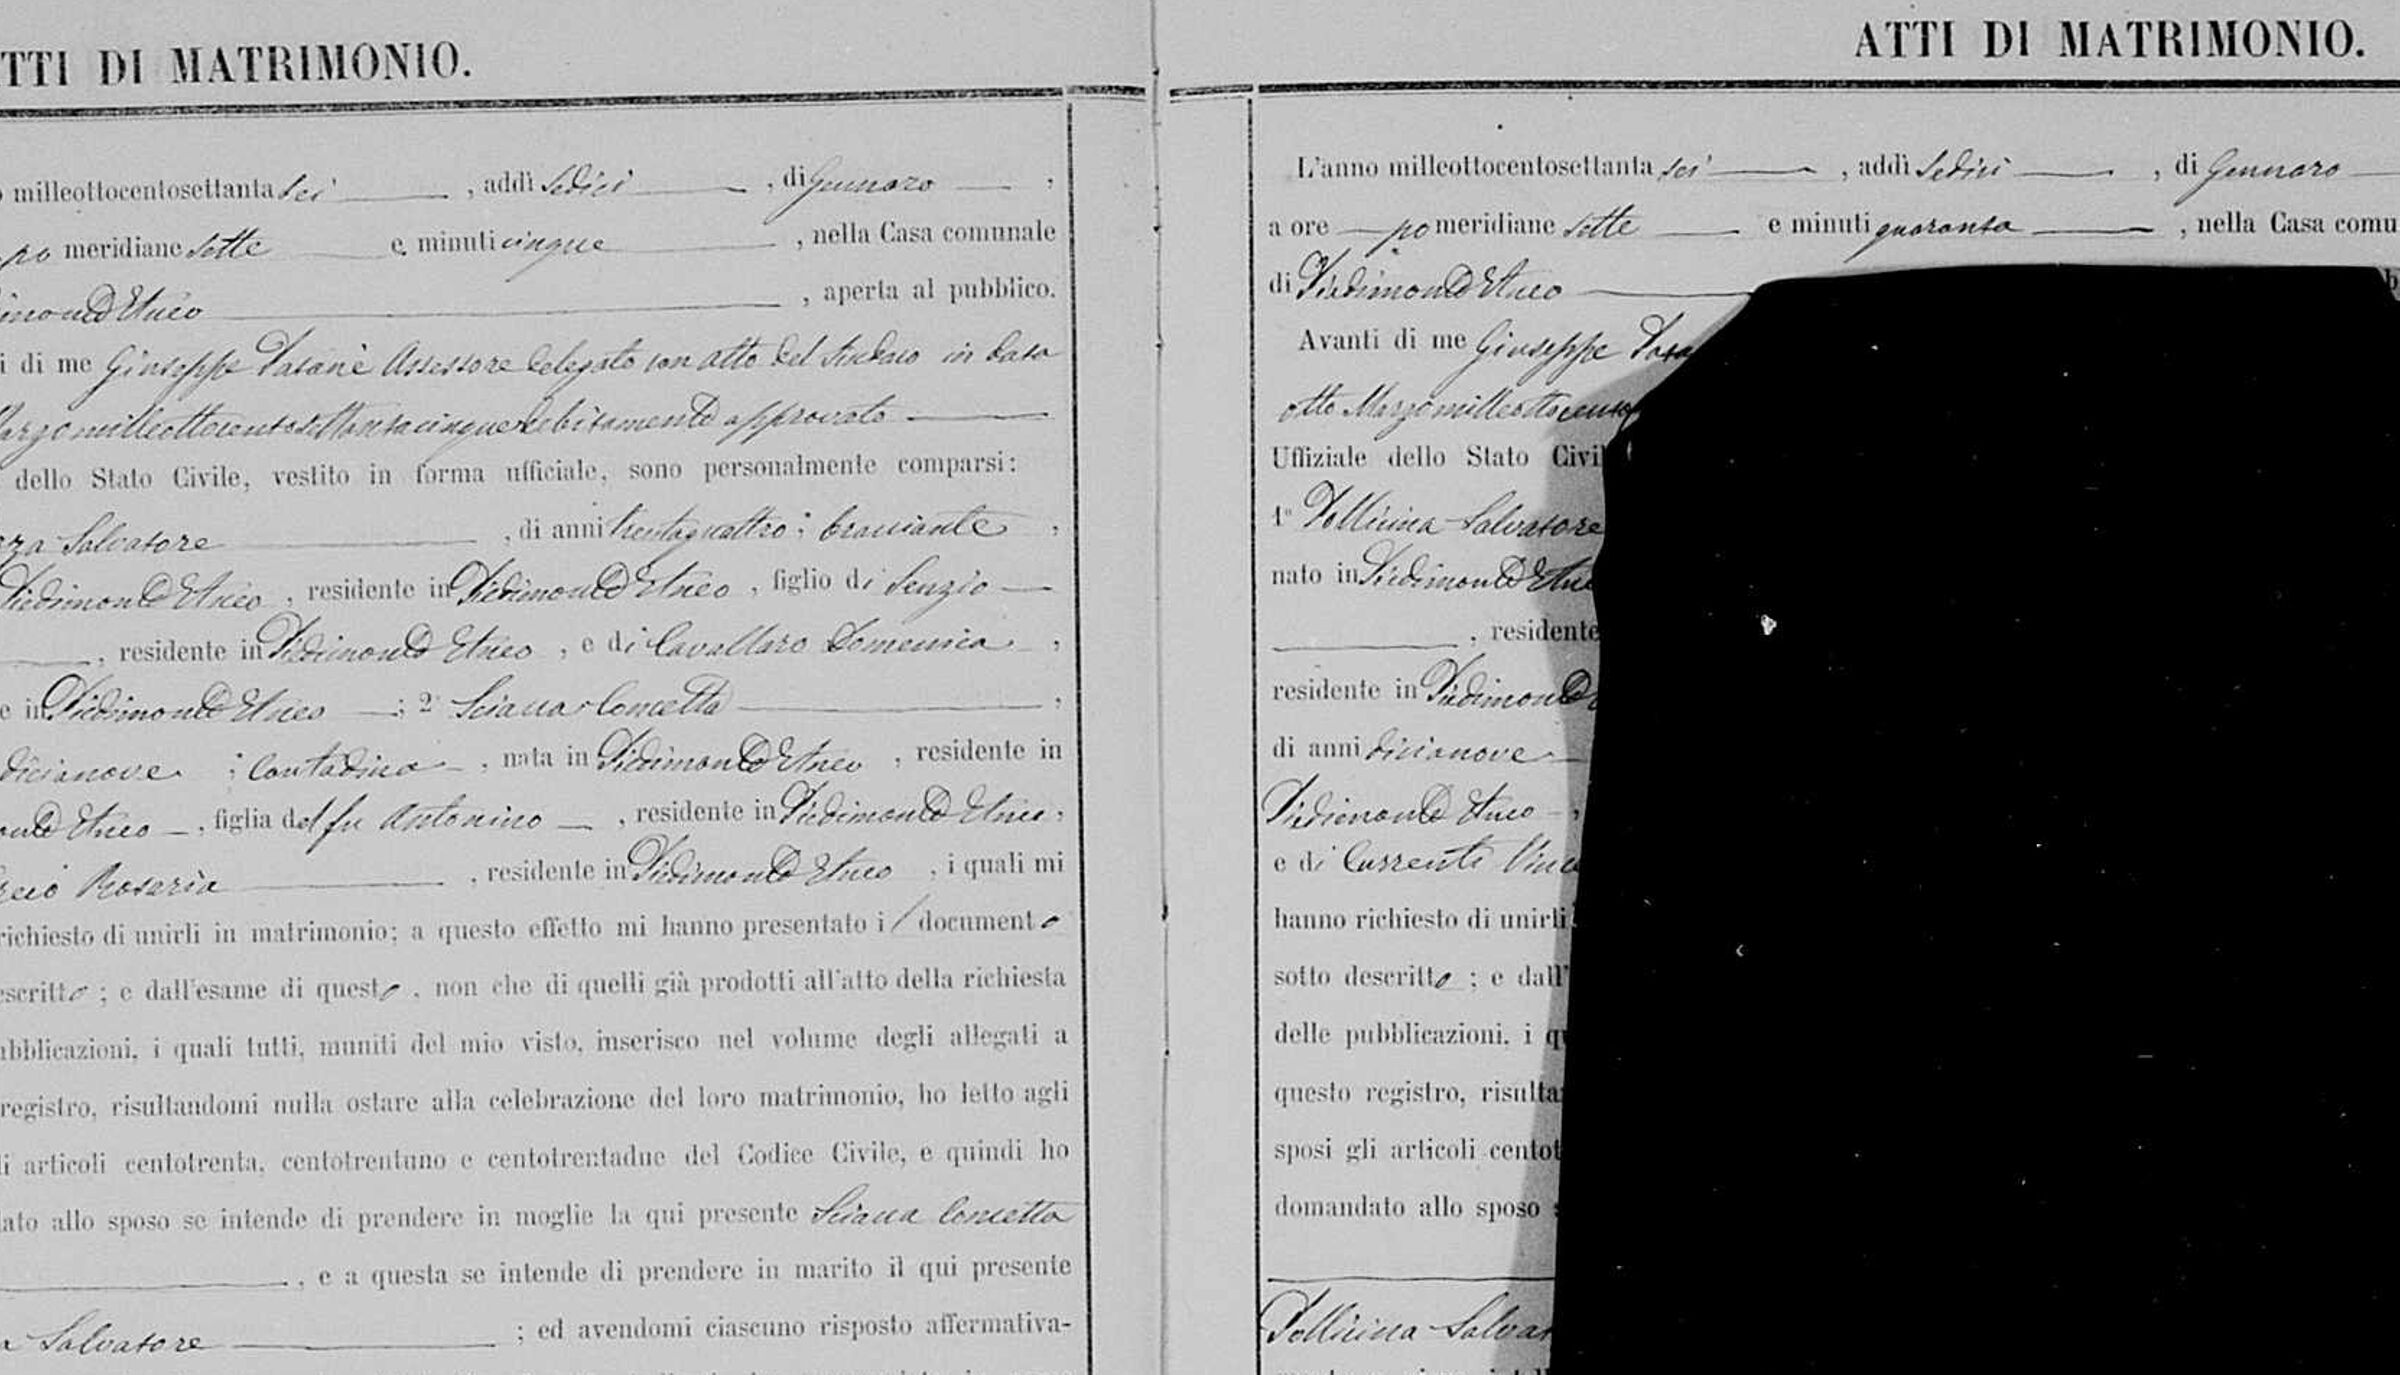 TTI DI MATRIMONIO.
milleottocentosettanta sei, addì sedici, di Gennaro,
po meridiane sette e minuti cinque, nella Casa comunale
, aperta al pubblico.
i di me Giuseppe Patanè Assessore delegato con atto del Sindaco in data
Marzo mille ottocento settanta cinque debitamente approvato
dello Stato Civile, vestito in forma ufficiale, sono personalmente comparsi:
Salvatore, di anni trentaquattro; bracciante,
Piedimonte Etneo, residente in Piedimonte Etneo, figlio di Senzio
, residente in Piedimonte Etneo, e di Cavallaro Domenica,
e in Piedimonte Etneo; 2° Sciacca Concetta,
dicianove; contadina, nata in Piedimonte Etneo, residente in
Etneo, figlia del fu Antonino, residente in Piedimonte Etneo,
Rosaria, residente in Piedimonte Etneo, i quali mi
richiesto di unirli in matrimonio; a questo effetto mi hanno presentato il documento
escritto; e dall'esame di questo, non che di quelli già prodotti all'atto della richiesta
ubblicazioni, i quali tutti, muniti del mio visto, inserisco nel volume degli allegati a
registro, risultandomi nulla ostare alla celebrazione del loro matrimonio, ho letto agli
li articoli centotrenta, centotrentuno e centotrentadue del Codice Civile, e quindi ho
dato allo sposo se intende di prendere in moglie la qui presente Sciacca Concetta
, e a questa se intende di prendere in marito il qui presente
Salvatore; ed avendomi ciascuno risposto affermativa-
ATTI DI MATRIMONIO.
L'anno milleottocentosettanta sei, addì sedici, di Gennaro
a ore po meridiane sette e minuti quaranta, nella Casa comu
di Piedimonte Etneo
Avanti di me Giuseppe Pata
otto Marzo mille ottocento
Uffiziale dello Stato Civil
1° Pollicina Salvatore
nato in Piedimonte Etne
, residente
residente in Piedimonte
di anni dicianove
Piedimonte Etneo,
e di Currenti Vinc
hanno richiesto di unirli
sotto descritto; e dall'
delle pubblicazioni, i qu
questo registro, risulta
sposi gli articoli centot
domandato allo sposo
Pollicina Salvat